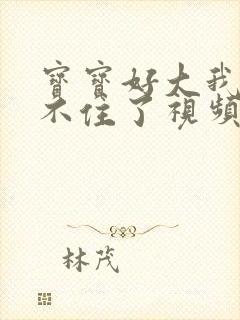 寶寶好大我
不住了視頻
林茂